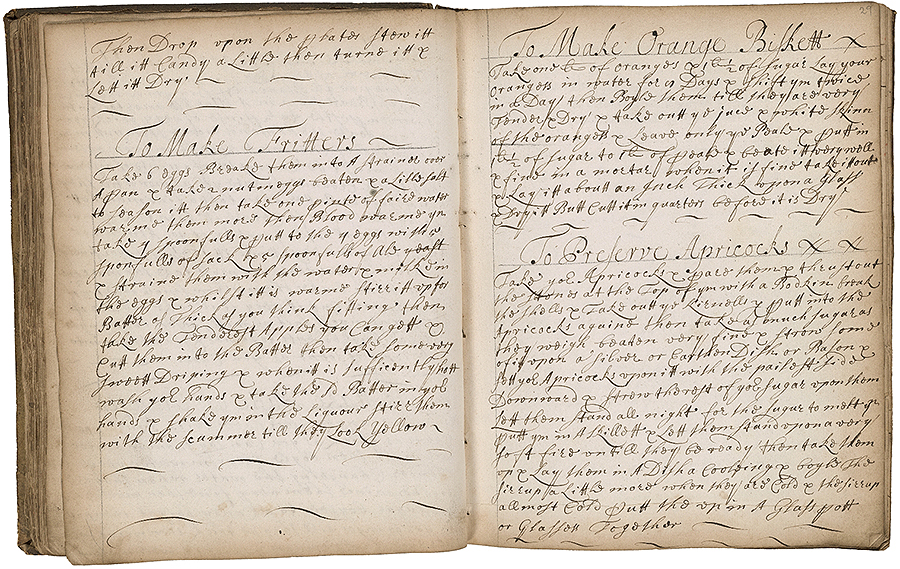 Then Drop upon the plates stew itt
till itt Candy a Little then turne itt x
Lett itt Dry
To Make Fritters
Take 6 eggs Breake them into A strainer over
A pan x take 2 nutmeggs beaten x a Little salt
to season itt then take one pinte of faire water
warme them more then Blood warme ym
take spoonfulls x putt to the y eggs with 5
spoonfulls of sack x 5 spoonfulls of Ale yeast
x straine them with the water x make in
the eggs x whilst itt is warme stirr itt up for
Batter as Thick as you think fitting then
take the Tenderest Apples you Can gett x
Cutt them into the Batter then take some very
sweett Driping x when itt is sufficiently hott
wash yor hands x take the sd Batter in yor
hands x shake ym in the Liquour stirr them
with the scummer till they Look Yellow
29
To Make Orange Biskett x
Take one of oranges x 1 1/2 of sugar Lay your
oranges in water for 9 Days x shift ym twice
in Days then Boyle them till they are very
Tender x Dry x take outt ye juce x white skinn
of the oranges x Leave only ye Peale x putt in
1 1/2 of sugar to 1 of peale x beate itt very well
x fine in a mortar when it is fine take itt out
x Lay itt about an Inch Thick upon a Glass
x Dry itt Butt Cutt it in quarters before it is Dry
To Preserve Apricocks x x
Take yor Apricocks x pare them x thrust out
the stones at the Top of ym with a Bodkin break
the shells x Take out ye kirnells x putt into the
Apricocks againe then take as much sugar as
they weigh beaten very fine x strow some
of itt upon a silver or Earthen Dish or Bason x
sett yor Apricocks upon itt with the side
Downward x strow the rest of yor sugar upon them
Lett them stand all night for the sugar to melt
putt ym in A skillett x Lett them stand upon a very
soft fire untill they be ready then take them
up x Lay them in A Dish a Cooleing x boyle The
sirrup a Little more when they are Cold x the sirrup
allmost Cold putt the up in A Glass pott
or Glasses Together